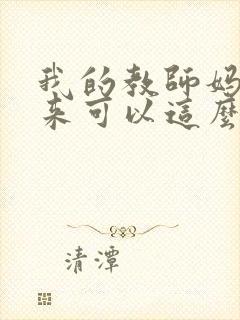 我的教師媽
来可以這麼
清潭